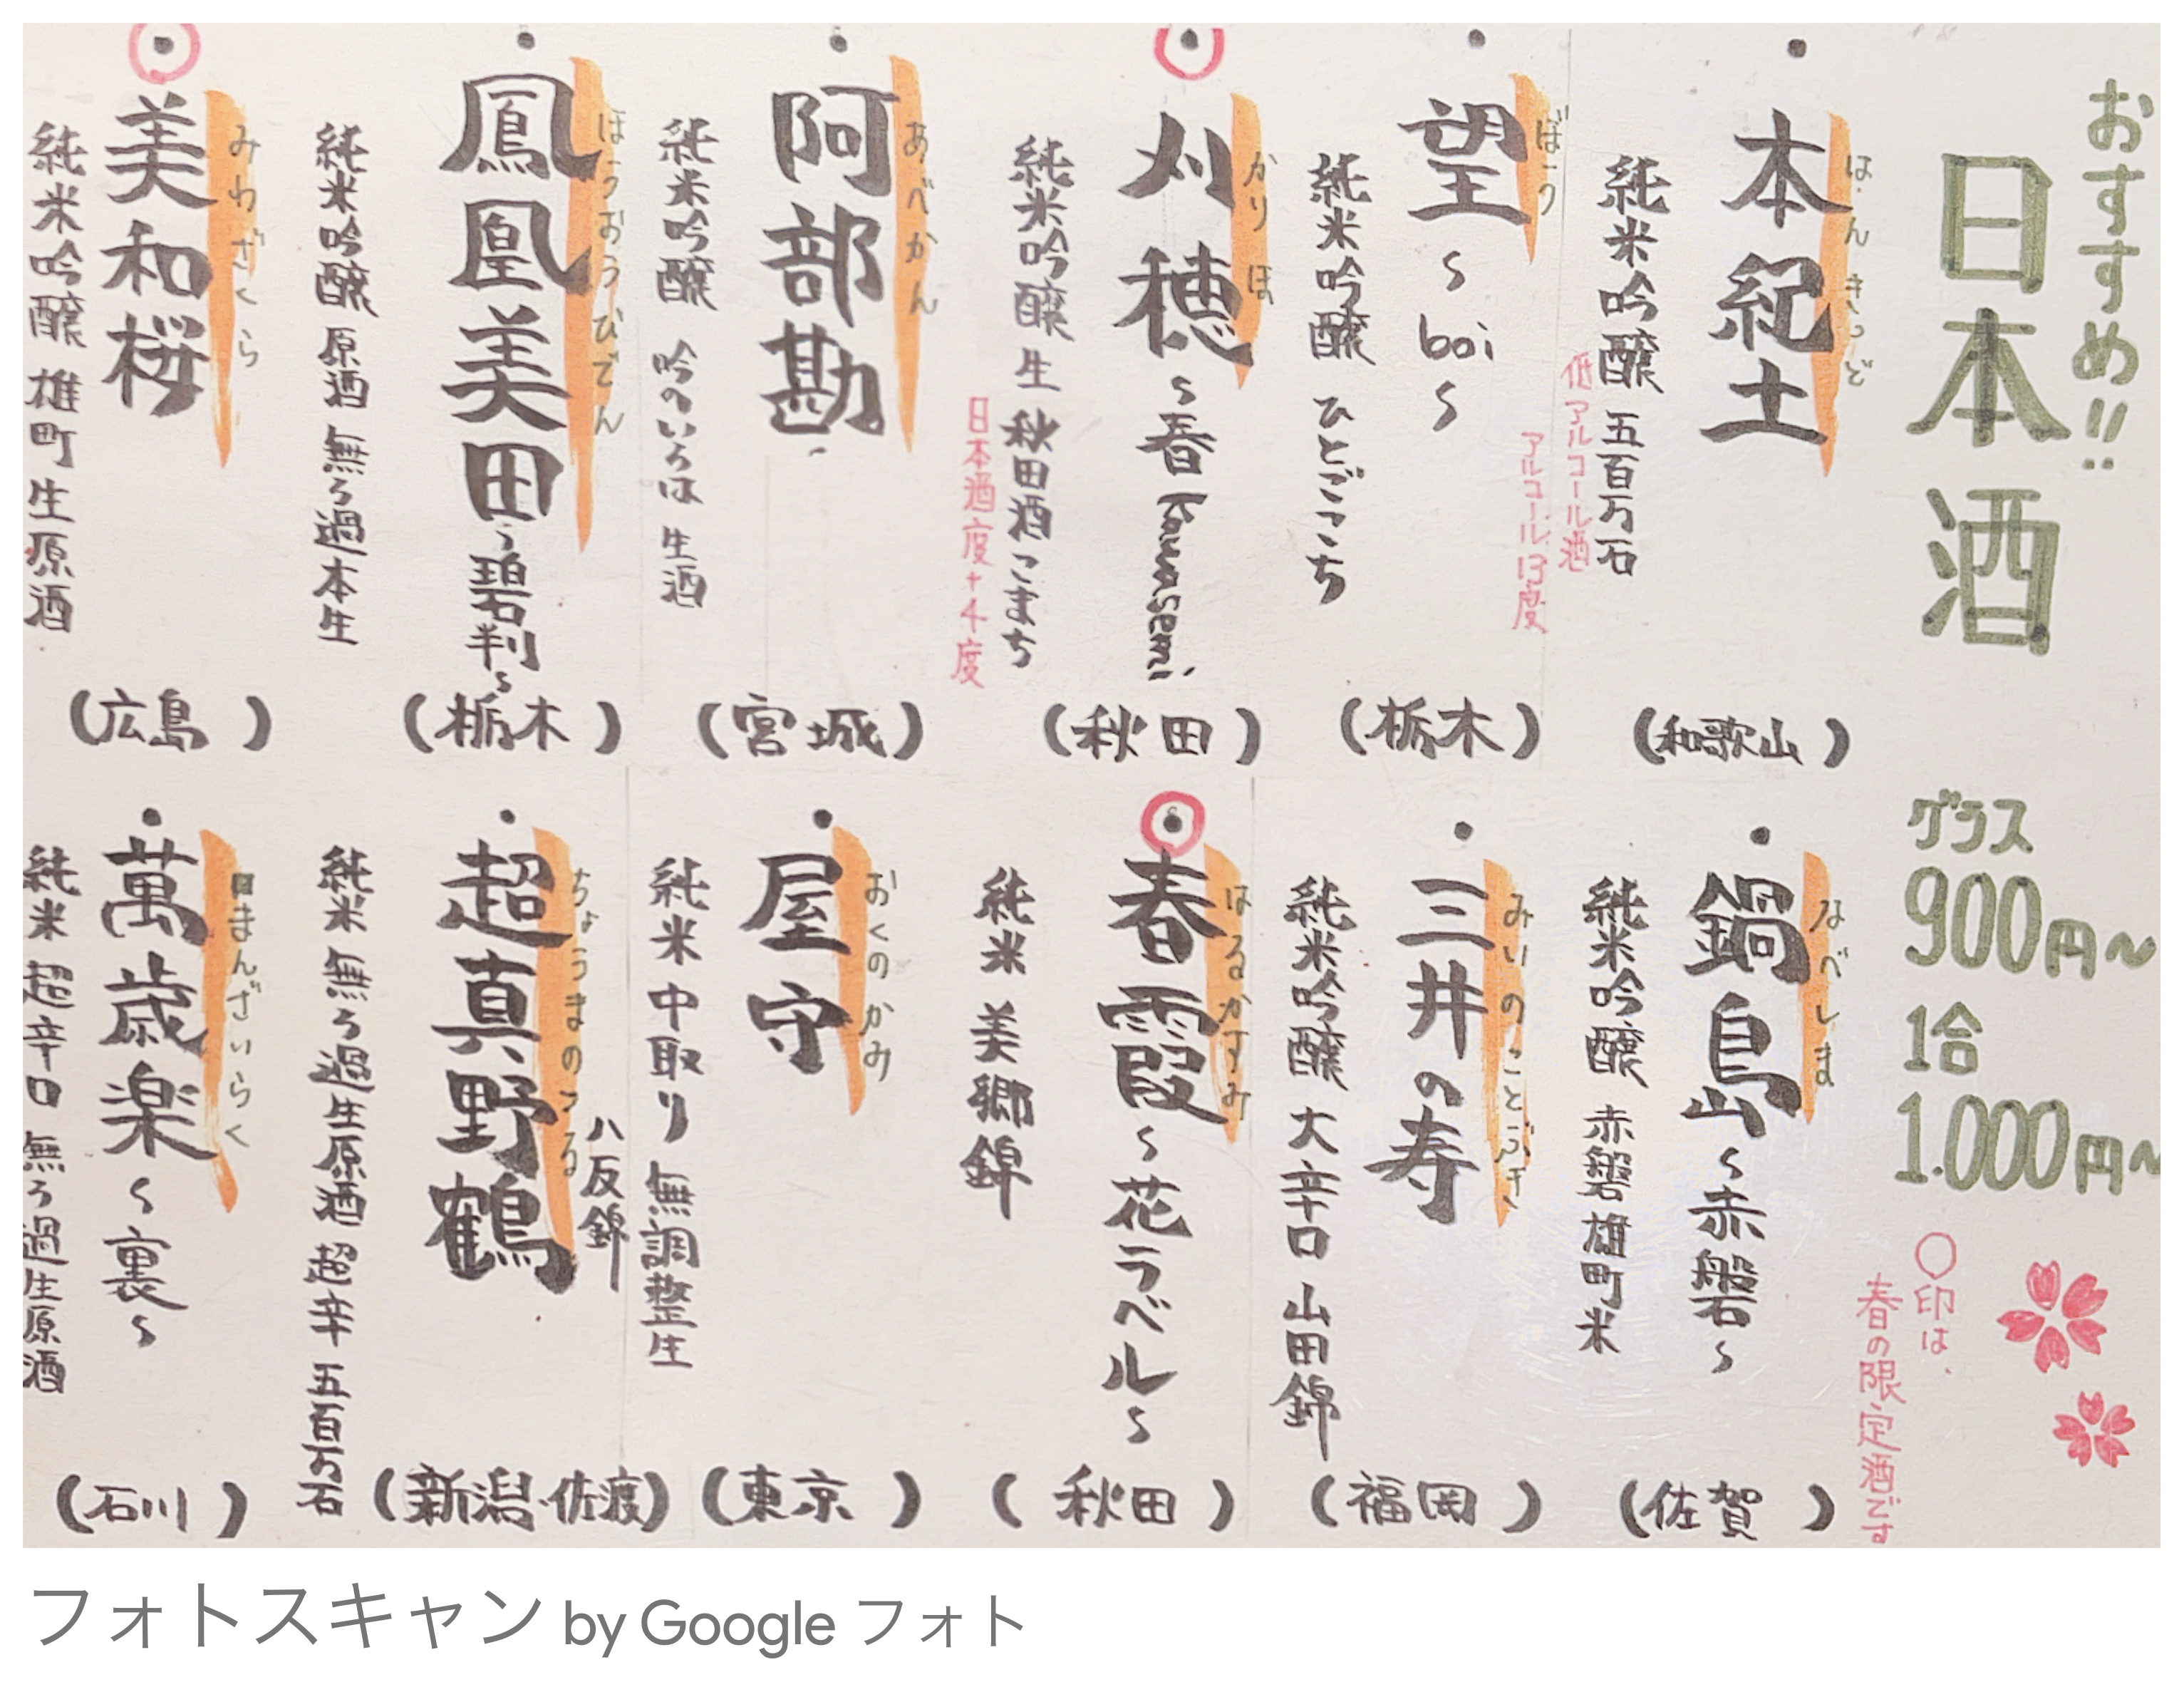 おすすめ!!
日本酒
グラス
900円〜
1合
1.000円〜
〇印は、
春の限定酒です
はんきっど
本紀土
純米吟醸 五百万石
低アルコール酒
アルコール13度
(和歌山)
ぼう
望〜boi〜
純米吟醸 ひとごこち
(栃木)
かりほ
刈穂〜春kawasemi〜
純米吟醸生 秋田酒こまち
日本酒度+4度
(秋田)
あべかん
阿部勘
純米吟醸 吟のいろは 生酒
(宮城)
ほうおうびでん
鳳凰美田〜碧判〜
純米吟醸 原酒 無ろ過本生
(栃木)
みわざくら
美和桜
純米吟醸 雄町 生原酒
(広島)
なべしま
鍋島〜赤磐〜
純米吟醸 赤磐雄町米
(佐賀)
みいのことぶき
三井の寿
純米吟醸 大辛口 山田錦
(福岡)
はるかすみ
春霞〜花ラベル〜
純米 美郷錦
(秋田)
おくのかみ
屋守
純米 中取り 無調整生
八反錦
(東京)
ちょうまのつる
超真野鶴
純米 無ろ過生原酒 超辛 五百万石
(新潟・佐渡)
まんざいらく
萬歳楽〜裏〜
純米 超辛口 無ろ過生原酒
(石川)
フォトスキャン by Google フォト